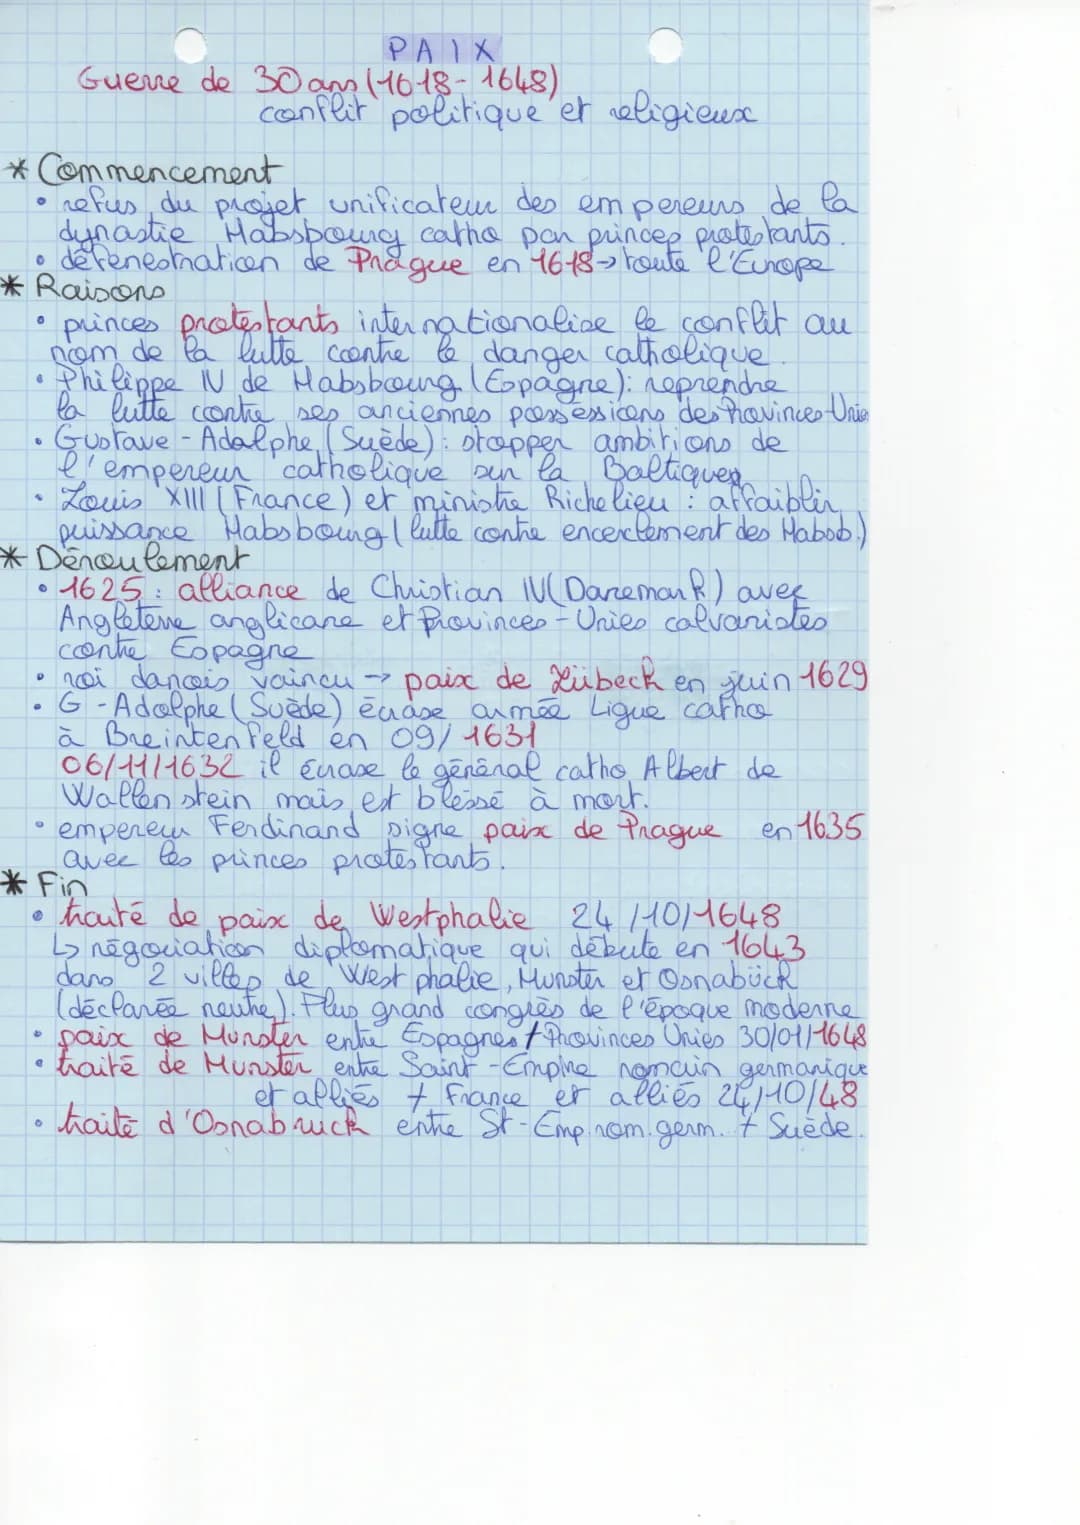 PAIX
Guerre de 30 ans (1618-1648)
conflit politique et religieux
* Commencement
• refus du projet unificateur des empereurs de la
dynastie Habsbourg catho par princes protestants.
• défenestration de Prague en 1618 → toute l'Europe
* Raisons
• princes protestants internationalise le conflit au
nom de la lutte contre le danger catholique.
• Philippe IV de Habsbourg (Espagne): reprendre
la lutte contre ses anciennes possessions des Provinces-Unies
• Gustave-Adolphe (Suède): stopper ambitions de
l'empereur catholique sur la Baltique
• Louis XIII (France) et ministre Richelieu : affaiblir
puissance Habsbourg (lutte contre encerclement des Habsb.)
* Déroulement
• 1625 : alliance de Christian IV (Danemark) avec
Angleterre anglicane et Provinces-Unies calvanistes
contre Espagne
• roi danois vaincu → paix de Lübeck en juin 1629
• G-Adolphe (Suède) écrase armée Ligue catho
à Breintenfeld en 09/1631
06/11/1632 il écrase le général catho Albert de
Wallenstein mais est bléssé à mort.
• empereur Ferdinand signe paix de Prague en 1635
avec les princes protestants.
* Fin
• traité de paix de Westphalie 24/10/1648
↳ négociation diplomatique qui débute en 1643
dans 2 villes de Westphalie, Munster et Osnabück
(déclarée neutre). Plus grand congrès de l'époque moderne
• paix de Munster entre Espagnes + Provinces Unies 30/01/1648
• traité de Munster entre Saint-Empire romain germanique
et alliés + France et alliés 24/10/48
• traité d'Osnabruck entre St-Emp.rom.germ. + Suède.